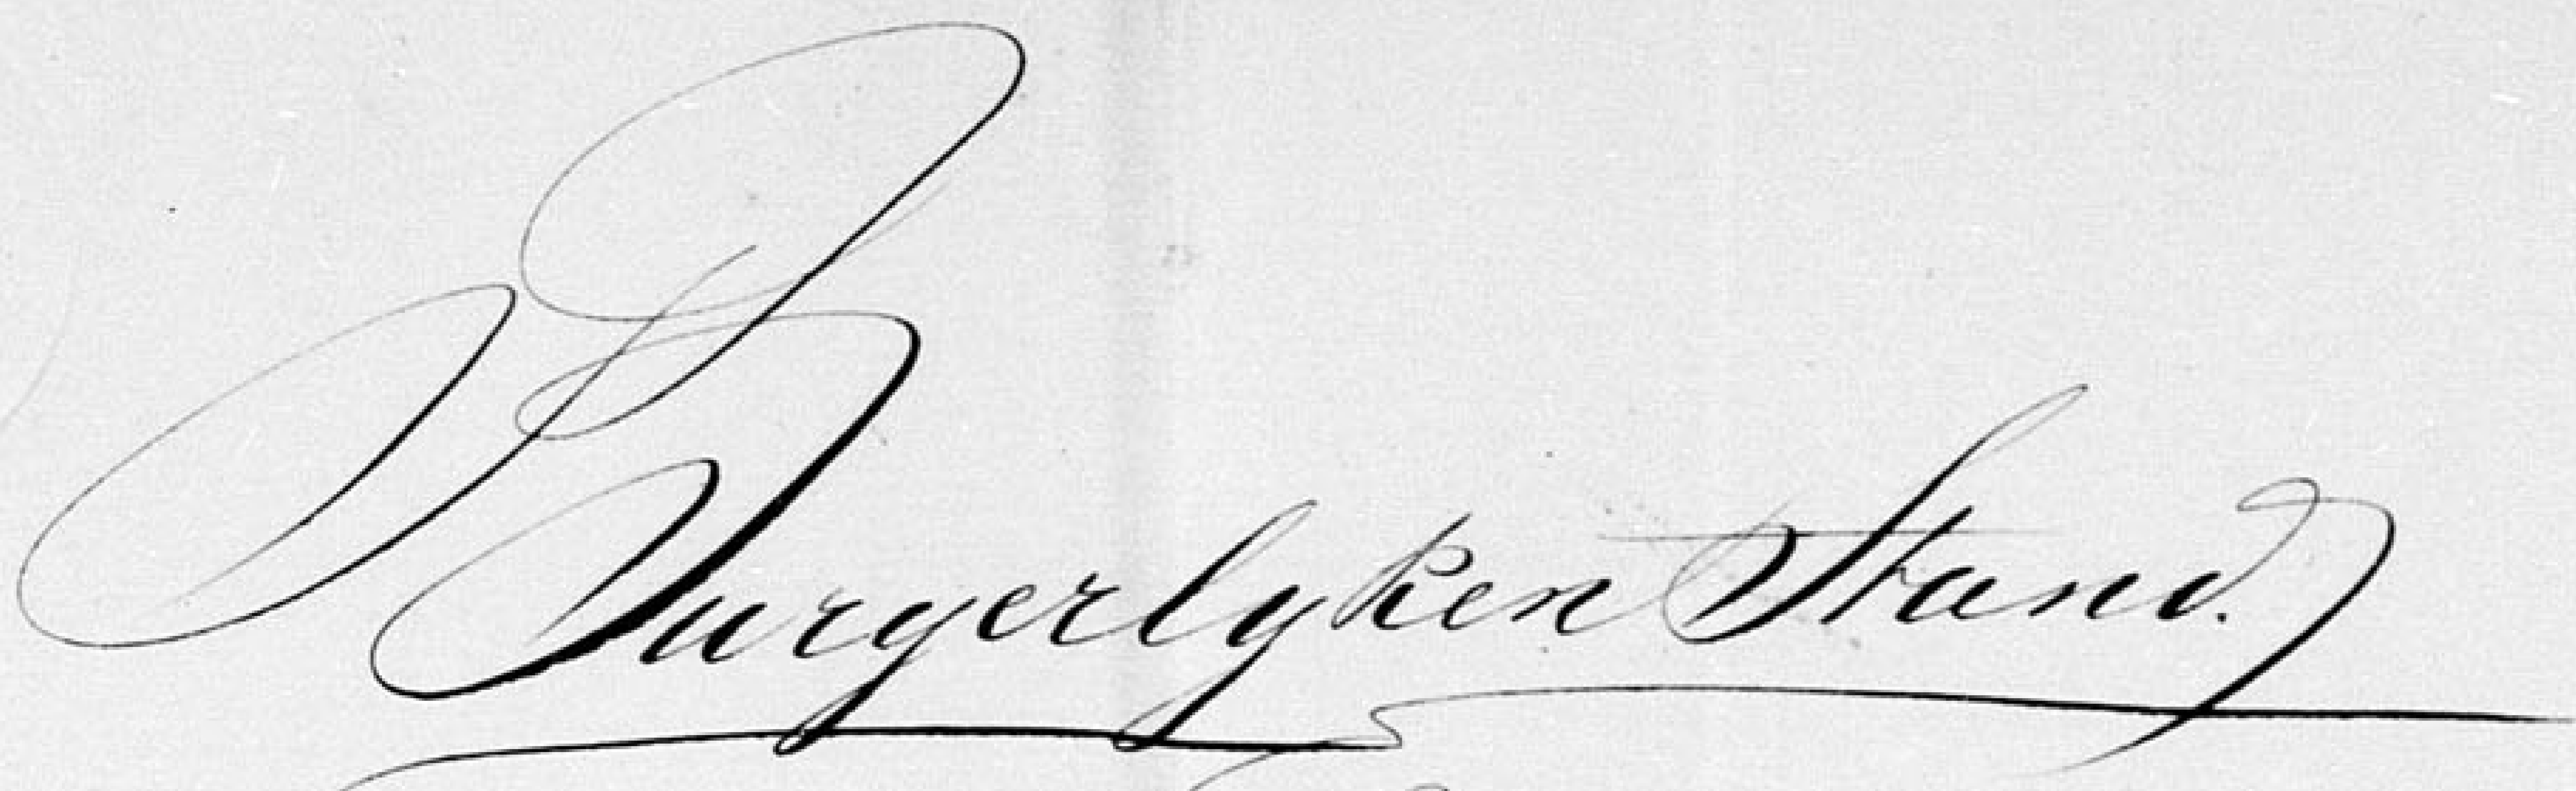 Burgerlyken Stand.